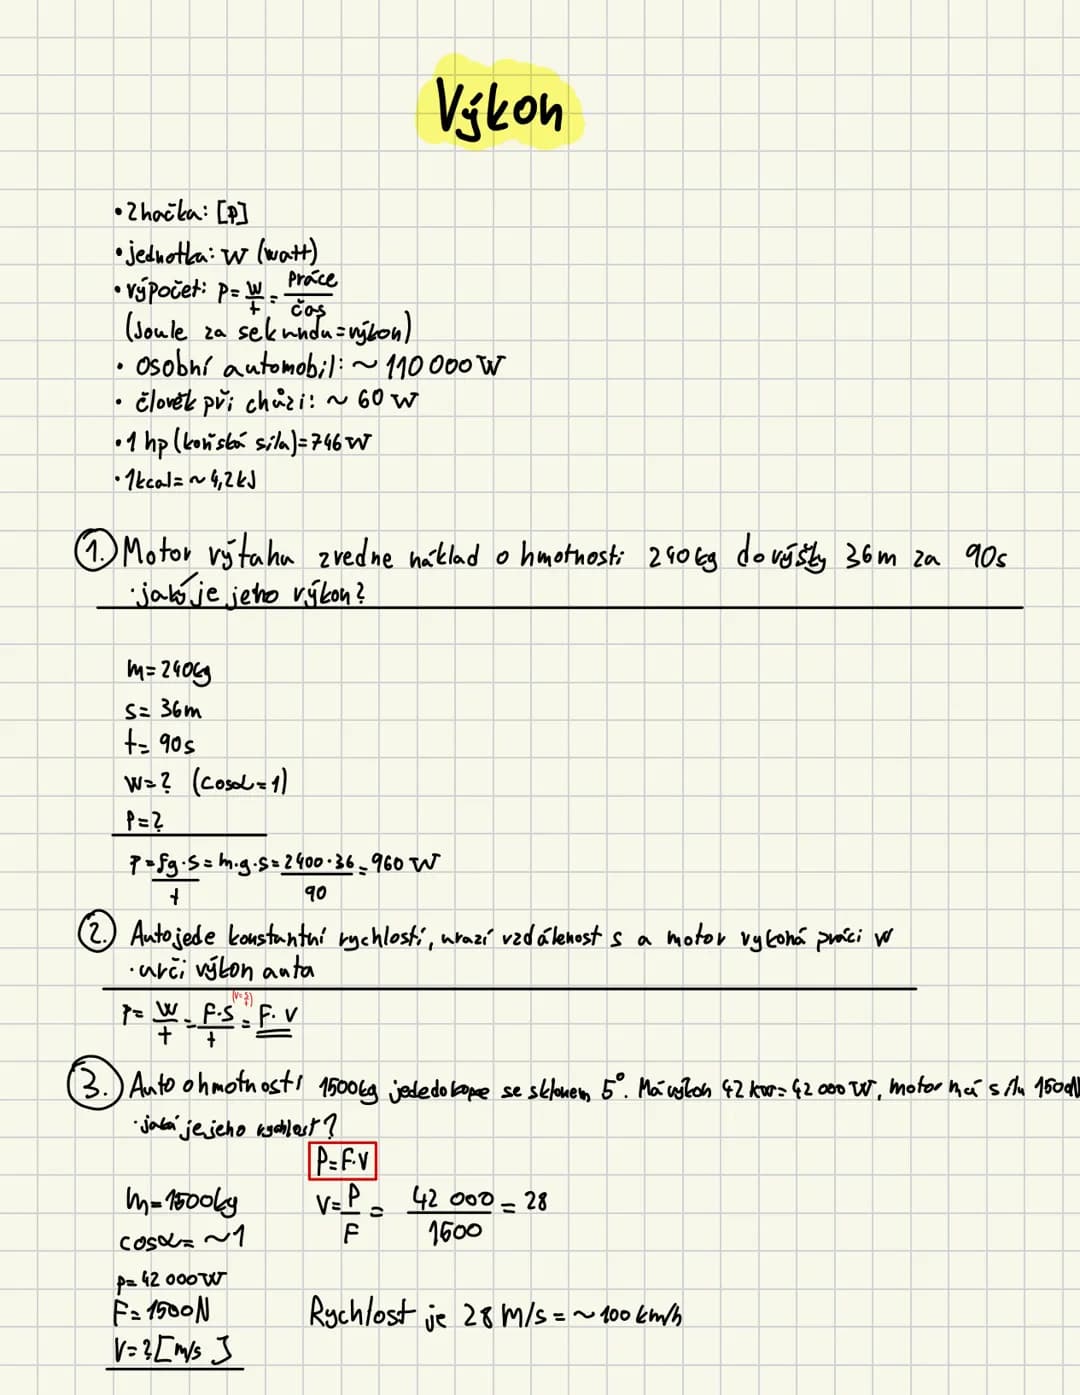 Výkon
• Značka: [P]
• jednotka: W (watt)
• výpočet: P = W/t = Práce/čas
(Joule za sekundu = výkon)
• osobní automobil: ~ 110 000 W
• člověk při chůzi: ~ 60 W
• 1 hp (koňská síla) = 746 W
• 1kcal = ~ 4,2 kJ
1. Motor výtahu zvedne náklad o hmotnosti 240 kg do výšky 36m za 90s
• jaký je jeho výkon?
m = 240kg
s = 36m
t = 90s
W = ? (cosα = 1)
P = ?
P = Fg·s/t = m·g·s = 2400·36/90 = 960 W
2. Auto jede konstantní rychlostí, urazí vzdálenost s a motor vykoná práci W
• urči výkon auta
(v=s/t)
P = W/t = F·s/t = F·v
3. Auto o hmotnosti 1500kg jede do kopce se sklonem 5°. Má výkon 42 kW = 42 000 W, motor má sílu 1500N
• jaká je jeho rychlost?
P = F·v
m = 1500kg
v = P/F = 42 000/1500 = 28
cosα = ~1
P = 42 000 W
F = 1500N
Rychlost je 28 m/s = ~ 100 km/h
v = ? [m/s]